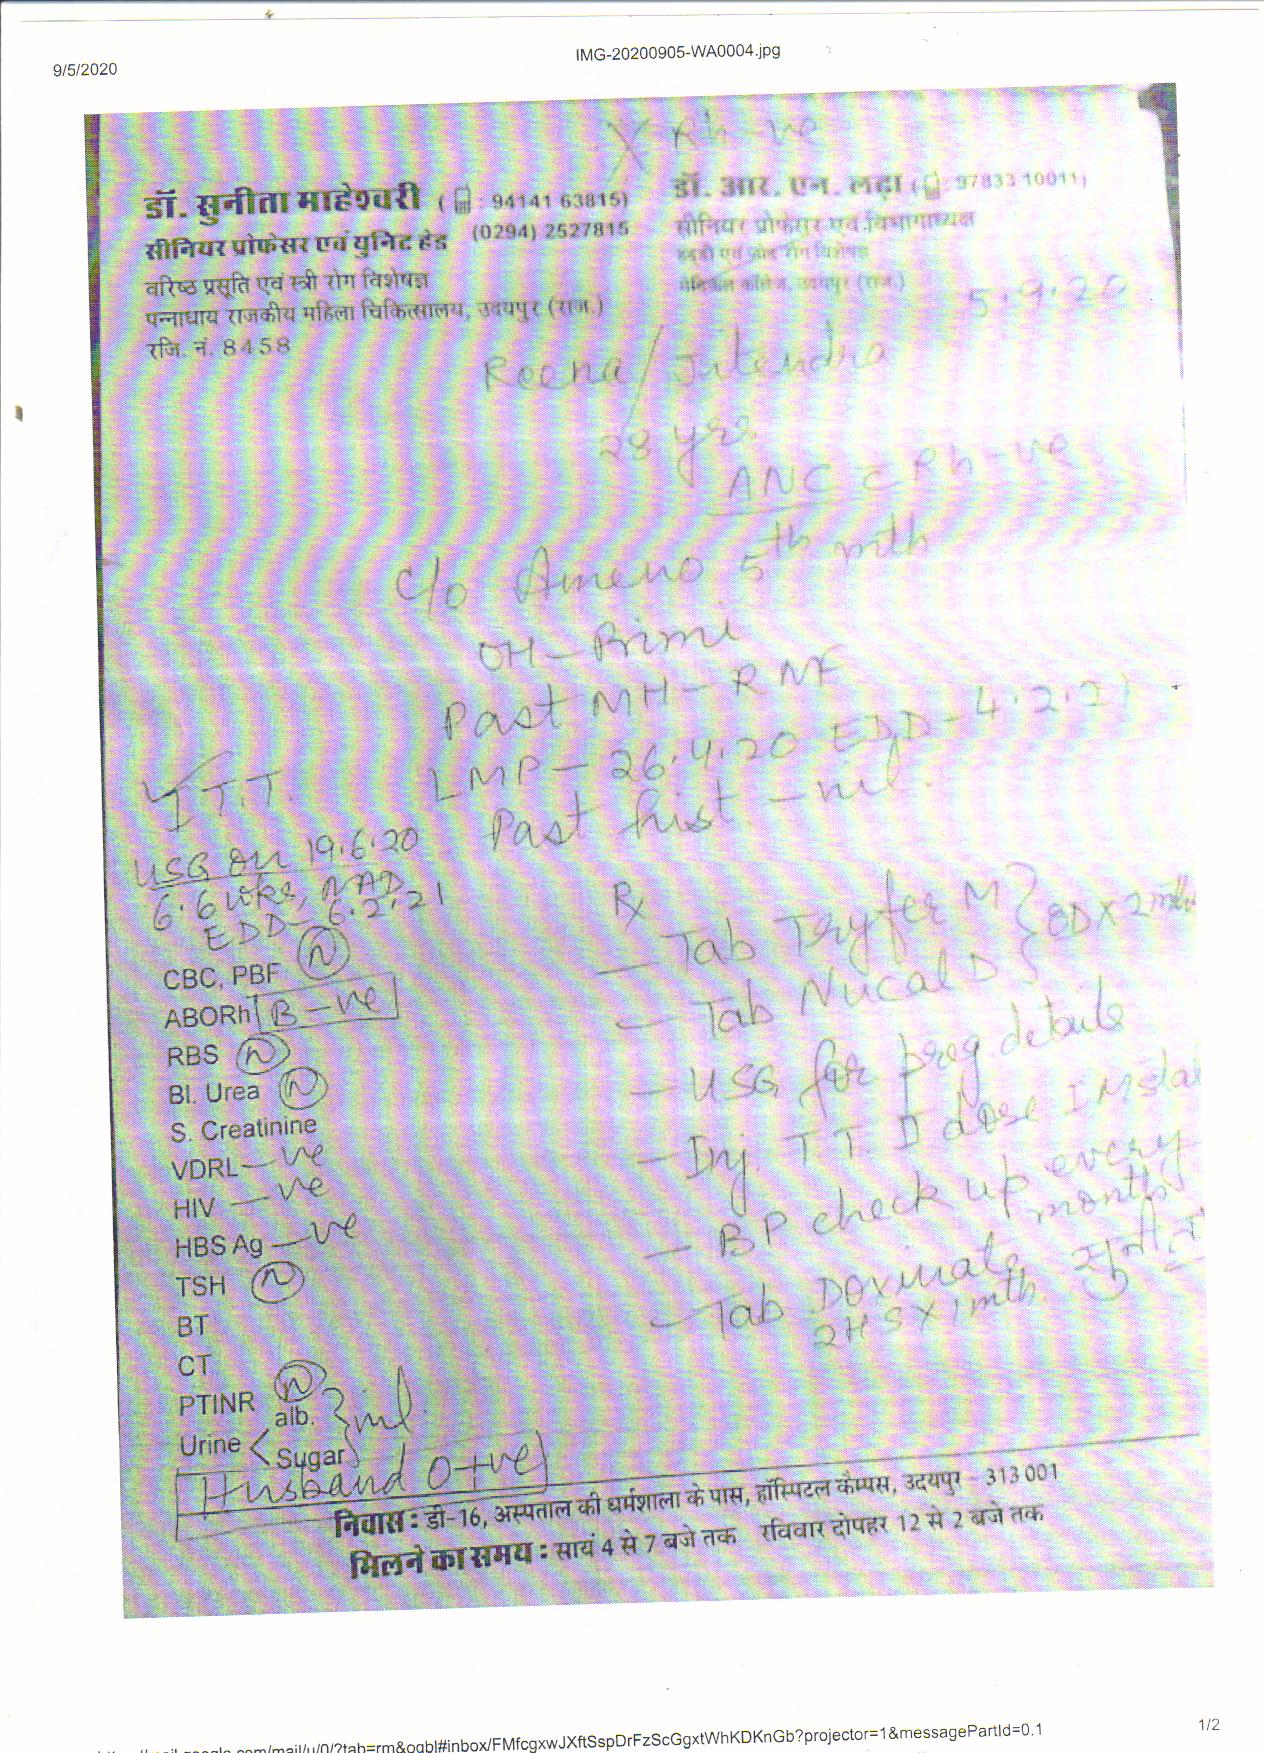 9/5/2020
IMG-20200905-WA0004.jpg
Rh -ve
डॉ. सुनीता माहेश्वरी ( : 94141 63815)
सीनियर प्रोफेसर एवं युनिट हेड (0294) 2527815
वरिष्ठ प्रसूति एवं स्त्री रोग विशेषज्ञ
पन्नाधाय राजकीय महिला चिकित्सालय, उदयपुर (राज.)
रजि. नं. 8458
डॉ. आर. एन. लढ़ा ( : 97833 10011)
सीनियर प्रोफेसर एवं विभागाध्यक्ष
मेडिकल कॉलेज, उदयपुर (राज.)
5.9.20
Reena / Jitendra
28 yrs
ANC c Rh -ve
c/o Ameno 5th mth
OH - Primi
Past MH - RNF
LMP - 26.4.20 EDD - 4.2.21
Past hist. - nil.
I T.T.
USG on 19.6.20
6.6 wks, NAD
EDD - 6.2.21
CBC, PBF N
ABORh B -ve
RBS N
Bl. Urea N
S. Creatinine
VDRL -ve
HIV -ve
HBS Ag -ve
TSH N
BT
CT
PTINR N
Urine < alb. } nil
Sugar
Husband O+ve
Rx
- Tab Tryfer M } OD X 2 mths
- Tab Nucal D }
- USG for preg. details
- Inj. T.T. II dose IM stat
- BP check up every
months
- Tab Doxinate
2 HS X 1 mth.
सुनीता
निवास : डी-16, अस्पताल की धर्मशाला के पास, हॉस्पिटल कैम्पस, उदयपुर - 313 001
मिलने का समय : सायं 4 से 7 बजे तक रविवार दोपहर 12 से 2 बजे तक
mail.google.com/mail/u/0/?tab=rm&ogbl#inbox/FMfcgxwJXftSspDrFzScGgxtWhKDKnGb?projector=1&messagePartId=0.1
1/2